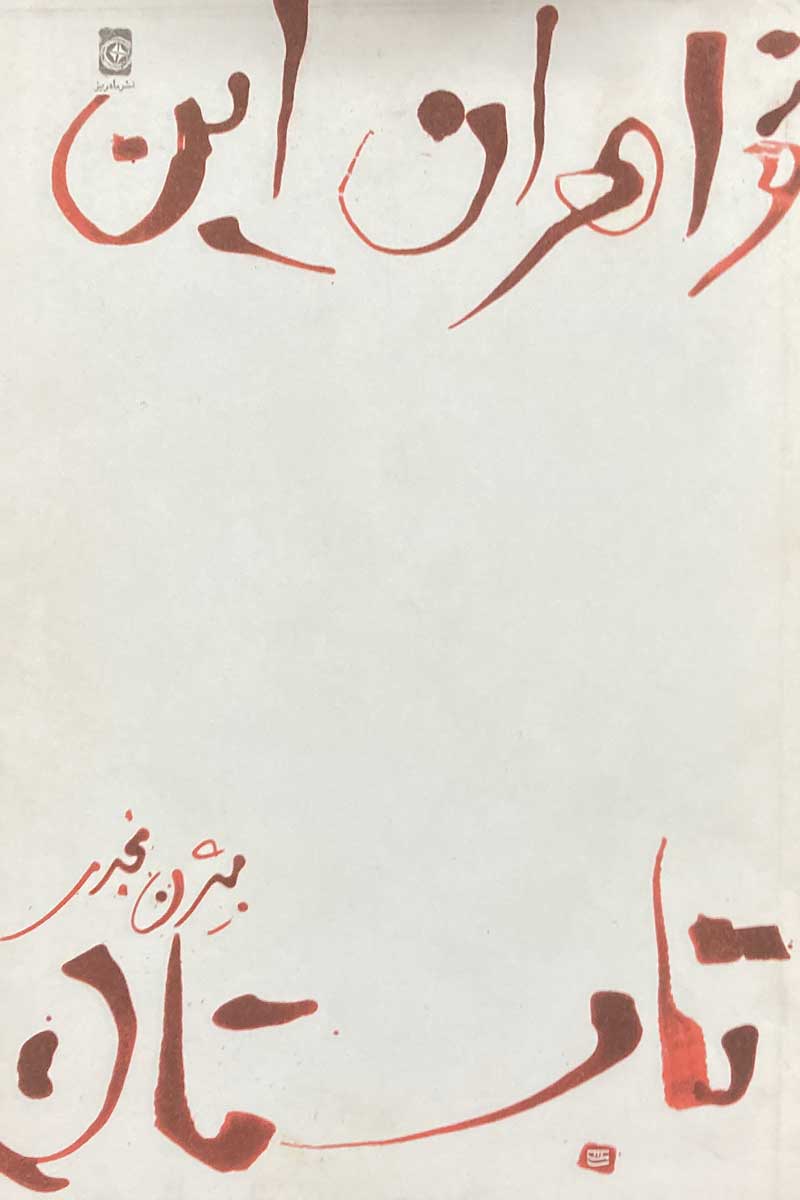 نشر ماه ریز
خواهران این
بیژن نجدی
تابستان